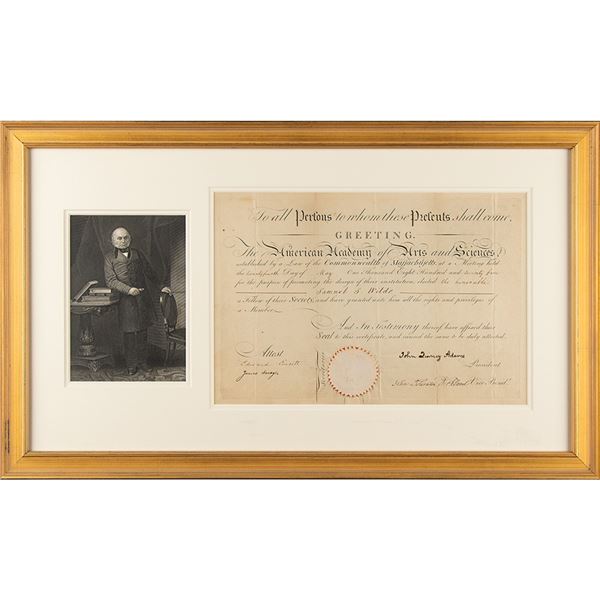 To all Persons to whom these Presents shall come,
GREETING.
The American Academy of Arts and Sciences,
established by a Law of the Commonwealth of Massachusetts, at a Meeting held
the twentyfourth Day of May One Thousand Eight Hundred and twenty five
for the purpose of promoting the design of their institution, elected the honorable
Samuel S Wilde
a Fellow of their Society, and have granted unto him all the rights and privileges of
a Member.
And In Testimony thereof have affixed their
Seal to this certificate, and caused the same to be duly attested.
Attest
John Quincy Adams
President
Edward Everett
James
John Vice Presid